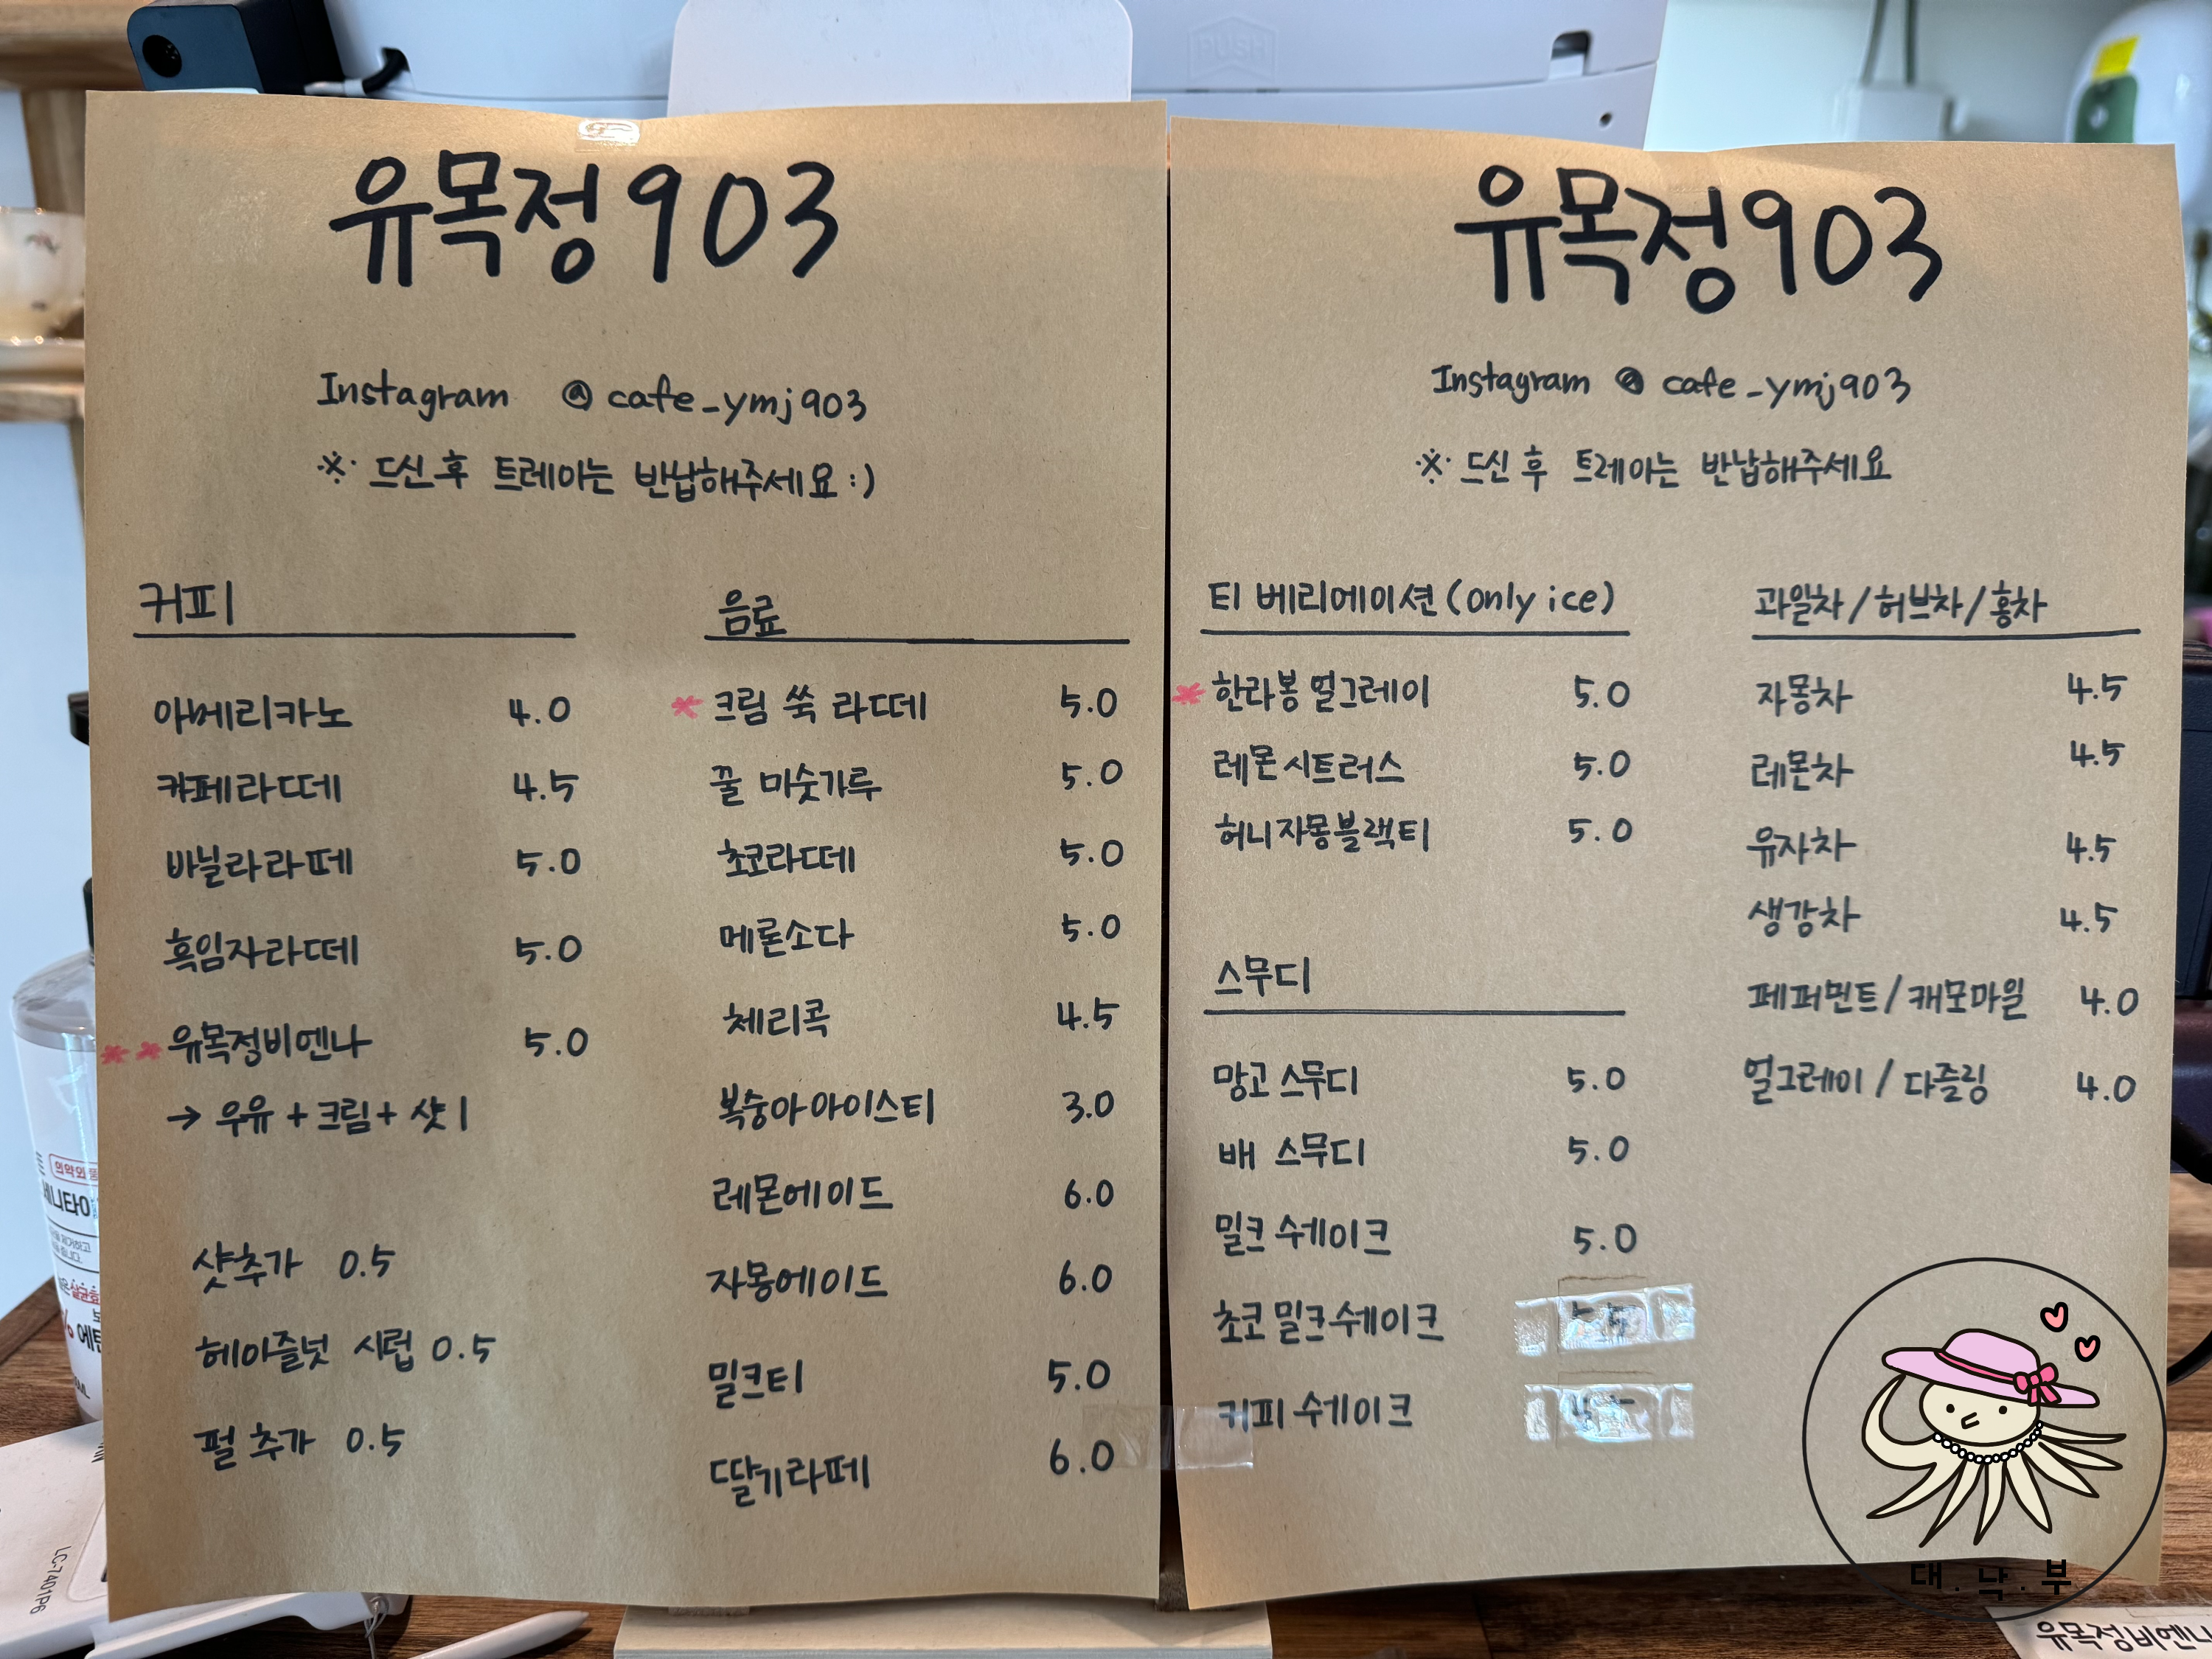 PUSH
유목정903
Instagram @cafe_ymj903
※ 드신 후 트레이는 반납해주세요 :)
커피
아메리카노 4.0
카페라떼 4.5
바닐라라떼 5.0
흑임자라떼 5.0
** 유목정비엔나 5.0
→ 우유 + 크림 + 샷 1
샷추가 0.5
헤이즐넛 시럽 0.5
펄 추가 0.5
음료
* 크림 쑥 라떼 5.0
꿀 미숫가루 5.0
초코라떼 5.0
메론소다 5.0
체리콕 4.5
복숭아아이스티 3.0
레몬에이드 6.0
자몽에이드 6.0
밀크티 5.0
딸기라떼 6.0
유목정903
Instagram @cafe_ymj903
※ 드신 후 트레이는 반납해주세요
티 베리에이션 (only ice)
* 한라봉 얼그레이 5.0
레몬시트러스 5.0
허니자몽블랙티 5.0
스무디
망고 스무디 5.0
배 스무디 5.0
밀크 쉐이크 5.0
초코 밀크쉐이크
커피 쉐이크
과일차 / 허브차 / 홍차
자몽차 4.5
레몬차 4.5
유자차 4.5
생강차 4.5
페퍼민트 / 캐모마일 4.0
얼그레이 / 다즐링 4.0
대.낙.부
유목정비엔나
의약외품
LC-7401P6